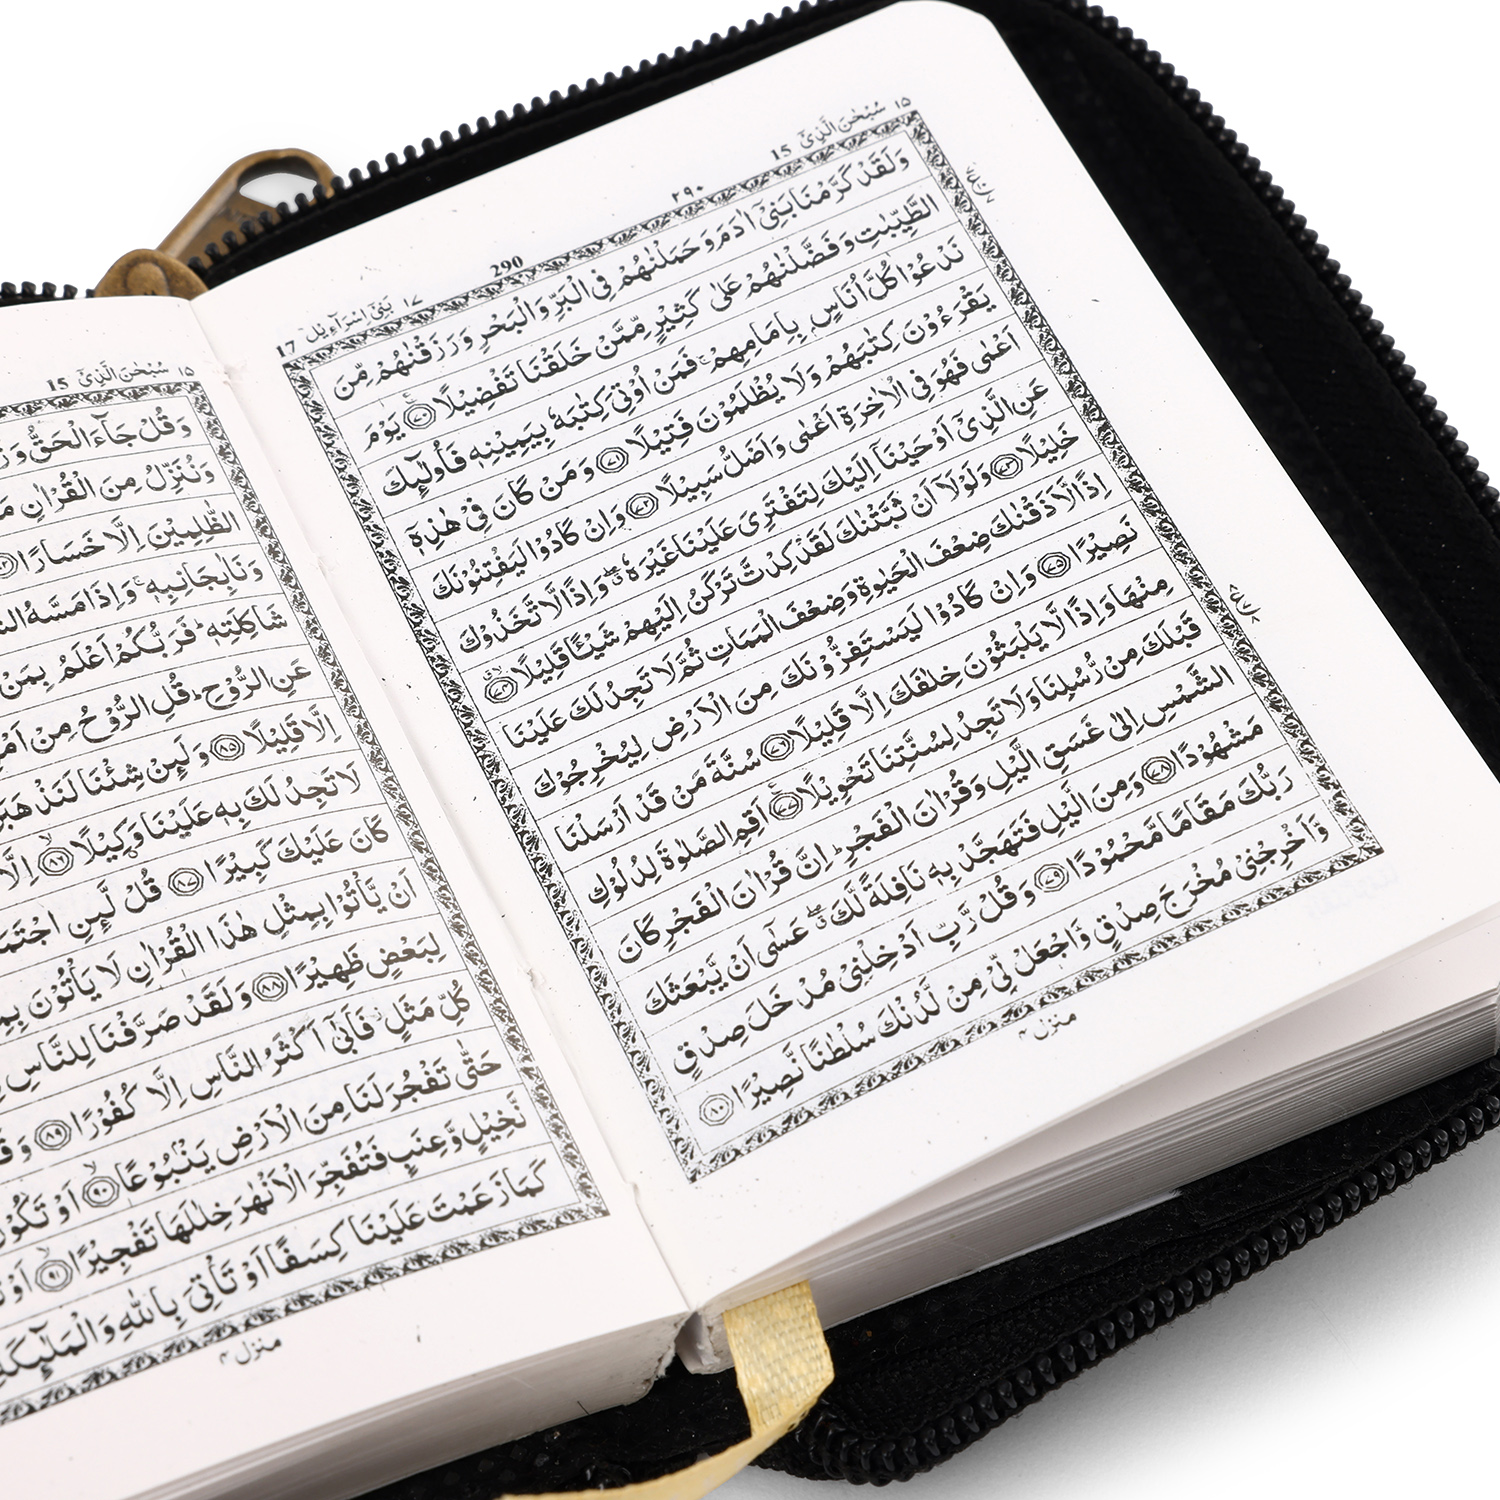 ١٥ سُبْحٰنَ الَّذِيْۤ 15
٢٩٠
290
١٧ بَنِيْۤ اِسْرَآءِيْل 17
وَلَقَدْ كَرَّمْنَا بَنِيْۤ اٰدَمَ وَحَمَلْنٰهُمْ فِي الْبَرِّ وَالْبَحْرِ وَرَزَقْنٰهُمْ مِّنَ
الطَّيِّبٰتِ وَفَضَّلْنٰهُمْ عَلٰى كَثِيْرٍ مِّمَّنْ خَلَقْنَا تَفْضِيْلًا ﴿٧٠﴾ يَوْمَ
نَدْعُوْا كُلَّ اُنَاسٍۭ بِاِمَامِهِمْ ۚ فَمَنْ اُوْتِيَ كِتٰبَهٗ بِيَمِيْنِهٖ فَاُولٰٓئِكَ
يَقْرَءُوْنَ كِتٰبَهُمْ وَلَا يُظْلَمُوْنَ فَتِيْلًا ﴿٧١﴾ وَمَنْ كَانَ فِيْ هٰذِهٖۤ
اَعْمٰى فَهُوَ فِي الْاٰخِرَةِ اَعْمٰى وَاَضَلُّ سَبِيْلًا ﴿٧٢﴾ وَاِنْ كَادُوْا لَيَفْتِنُوْنَكَ
عَنِ الَّذِيْۤ اَوْحَيْنَاۤ اِلَيْكَ لِتَفْتَرِيَ عَلَيْنَا غَيْرَهٗ ۖ وَاِذًا لَّاتَّخَذُوْكَ
خَلِيْلًا ﴿٧٣﴾ وَلَوْلَاۤ اَنْ ثَبَّتْنٰكَ لَقَدْ كِدْتَّ تَرْكَنُ اِلَيْهِمْ شَيْـًٔا قَلِيْلًا ﴿٧٤﴾
اِذًا لَّاَذَقْنٰكَ ضِعْفَ الْحَيٰوةِ وَضِعْفَ الْمَمَاتِ ثُمَّ لَا تَجِدُ لَكَ عَلَيْنَا
نَصِيْرًا ﴿٧٥﴾ وَاِنْ كَادُوْا لَيَسْتَفِزُّوْنَكَ مِنَ الْاَرْضِ لِيُخْرِجُوْكَ
مِنْهَا وَاِذًا لَّا يَلْبَثُوْنَ خِلٰفَكَ اِلَّا قَلِيْلًا ﴿٧٦﴾ سُنَّةَ مَنْ قَدْ اَرْسَلْنَا
قَبْلَكَ مِنْ رُّسُلِنَا وَلَا تَجِدُ لِسُنَّتِنَا تَحْوِيْلًا ﴿٧٧﴾ اَقِمِ الصَّلٰوةَ لِدُلُوْكِ
الشَّمْسِ اِلٰى غَسَقِ الَّيْلِ وَقُرْاٰنَ الْفَجْرِ ؕ اِنَّ قُرْاٰنَ الْفَجْرِ كَانَ
مَشْهُوْدًا ﴿٧٨﴾ وَمِنَ الَّيْلِ فَتَهَجَّدْ بِهٖ نَافِلَةً لَّكَ ۖ عَسٰۤى اَنْ يَّبْعَثَكَ
رَبُّكَ مَقَامًا مَّحْمُوْدًا ﴿٧٩﴾ وَقُلْ رَّبِّ اَدْخِلْنِيْ مُدْخَلَ صِدْقٍ
وَّاَخْرِجْنِيْ مُخْرَجَ صِدْقٍ وَّاجْعَلْ لِّيْ مِنْ لَّدُنْكَ سُلْطٰنًا نَّصِيْرًا ﴿٨٠﴾
منزل ٤
١٥ سُبْحٰنَ الَّذِيْۤ 15
وَقُلْ جَآءَ الْحَقُّ
وَنُنَزِّلُ مِنَ الْقُرْاٰنِ
الظّٰلِمِيْنَ اِلَّا خَسَارًا
وَنَاٰ بِجَانِبِهٖ ۚ وَاِذَا مَسَّهُ
شَاكِلَتِهٖ ؕ فَرَبُّكُمْ اَعْلَمُ بِمَنْ
عَنِ الرُّوْحِ ؕ قُلِ الرُّوْحُ مِنْ
اِلَّا قَلِيْلًا ﴿٨٥﴾ وَلَئِنْ شِئْنَا
لَا تَجِدُ لَكَ بِهٖ عَلَيْنَا وَكِيْلًا ﴿٨٦﴾ اِلَّا
كَانَ عَلَيْكَ كَبِيْرًا ﴿٨٧﴾ قُلْ لَّئِنِ
اَنْ يَّاْتُوْا بِمِثْلِ هٰذَا الْقُرْاٰنِ لَا يَاْتُوْنَ
لِبَعْضٍ ظَهِيْرًا ﴿٨٨﴾ وَلَقَدْ صَرَّفْنَا لِلنَّاسِ
كُلِّ مَثَلٍ ۫ فَاَبٰۤى اَكْثَرُ النَّاسِ اِلَّا كُفُوْرًا ﴿٨٩﴾
حَتّٰى تَفْجُرَ لَنَا مِنَ الْاَرْضِ يَنْۢبُوْعًا ﴿٩٠﴾ اَوْ تَكُوْنَ
نَّخِيْلٍ وَّعِنَبٍ فَتُفَجِّرَ الْاَنْهٰرَ خِلٰلَهَا تَفْجِيْرًا ﴿٩١﴾ اَوْ
كَمَا زَعَمْتَ عَلَيْنَا كِسَفًا اَوْ تَاْتِيَ بِاللّٰهِ وَالْمَلٰٓئِكَةِ
منزل ٤